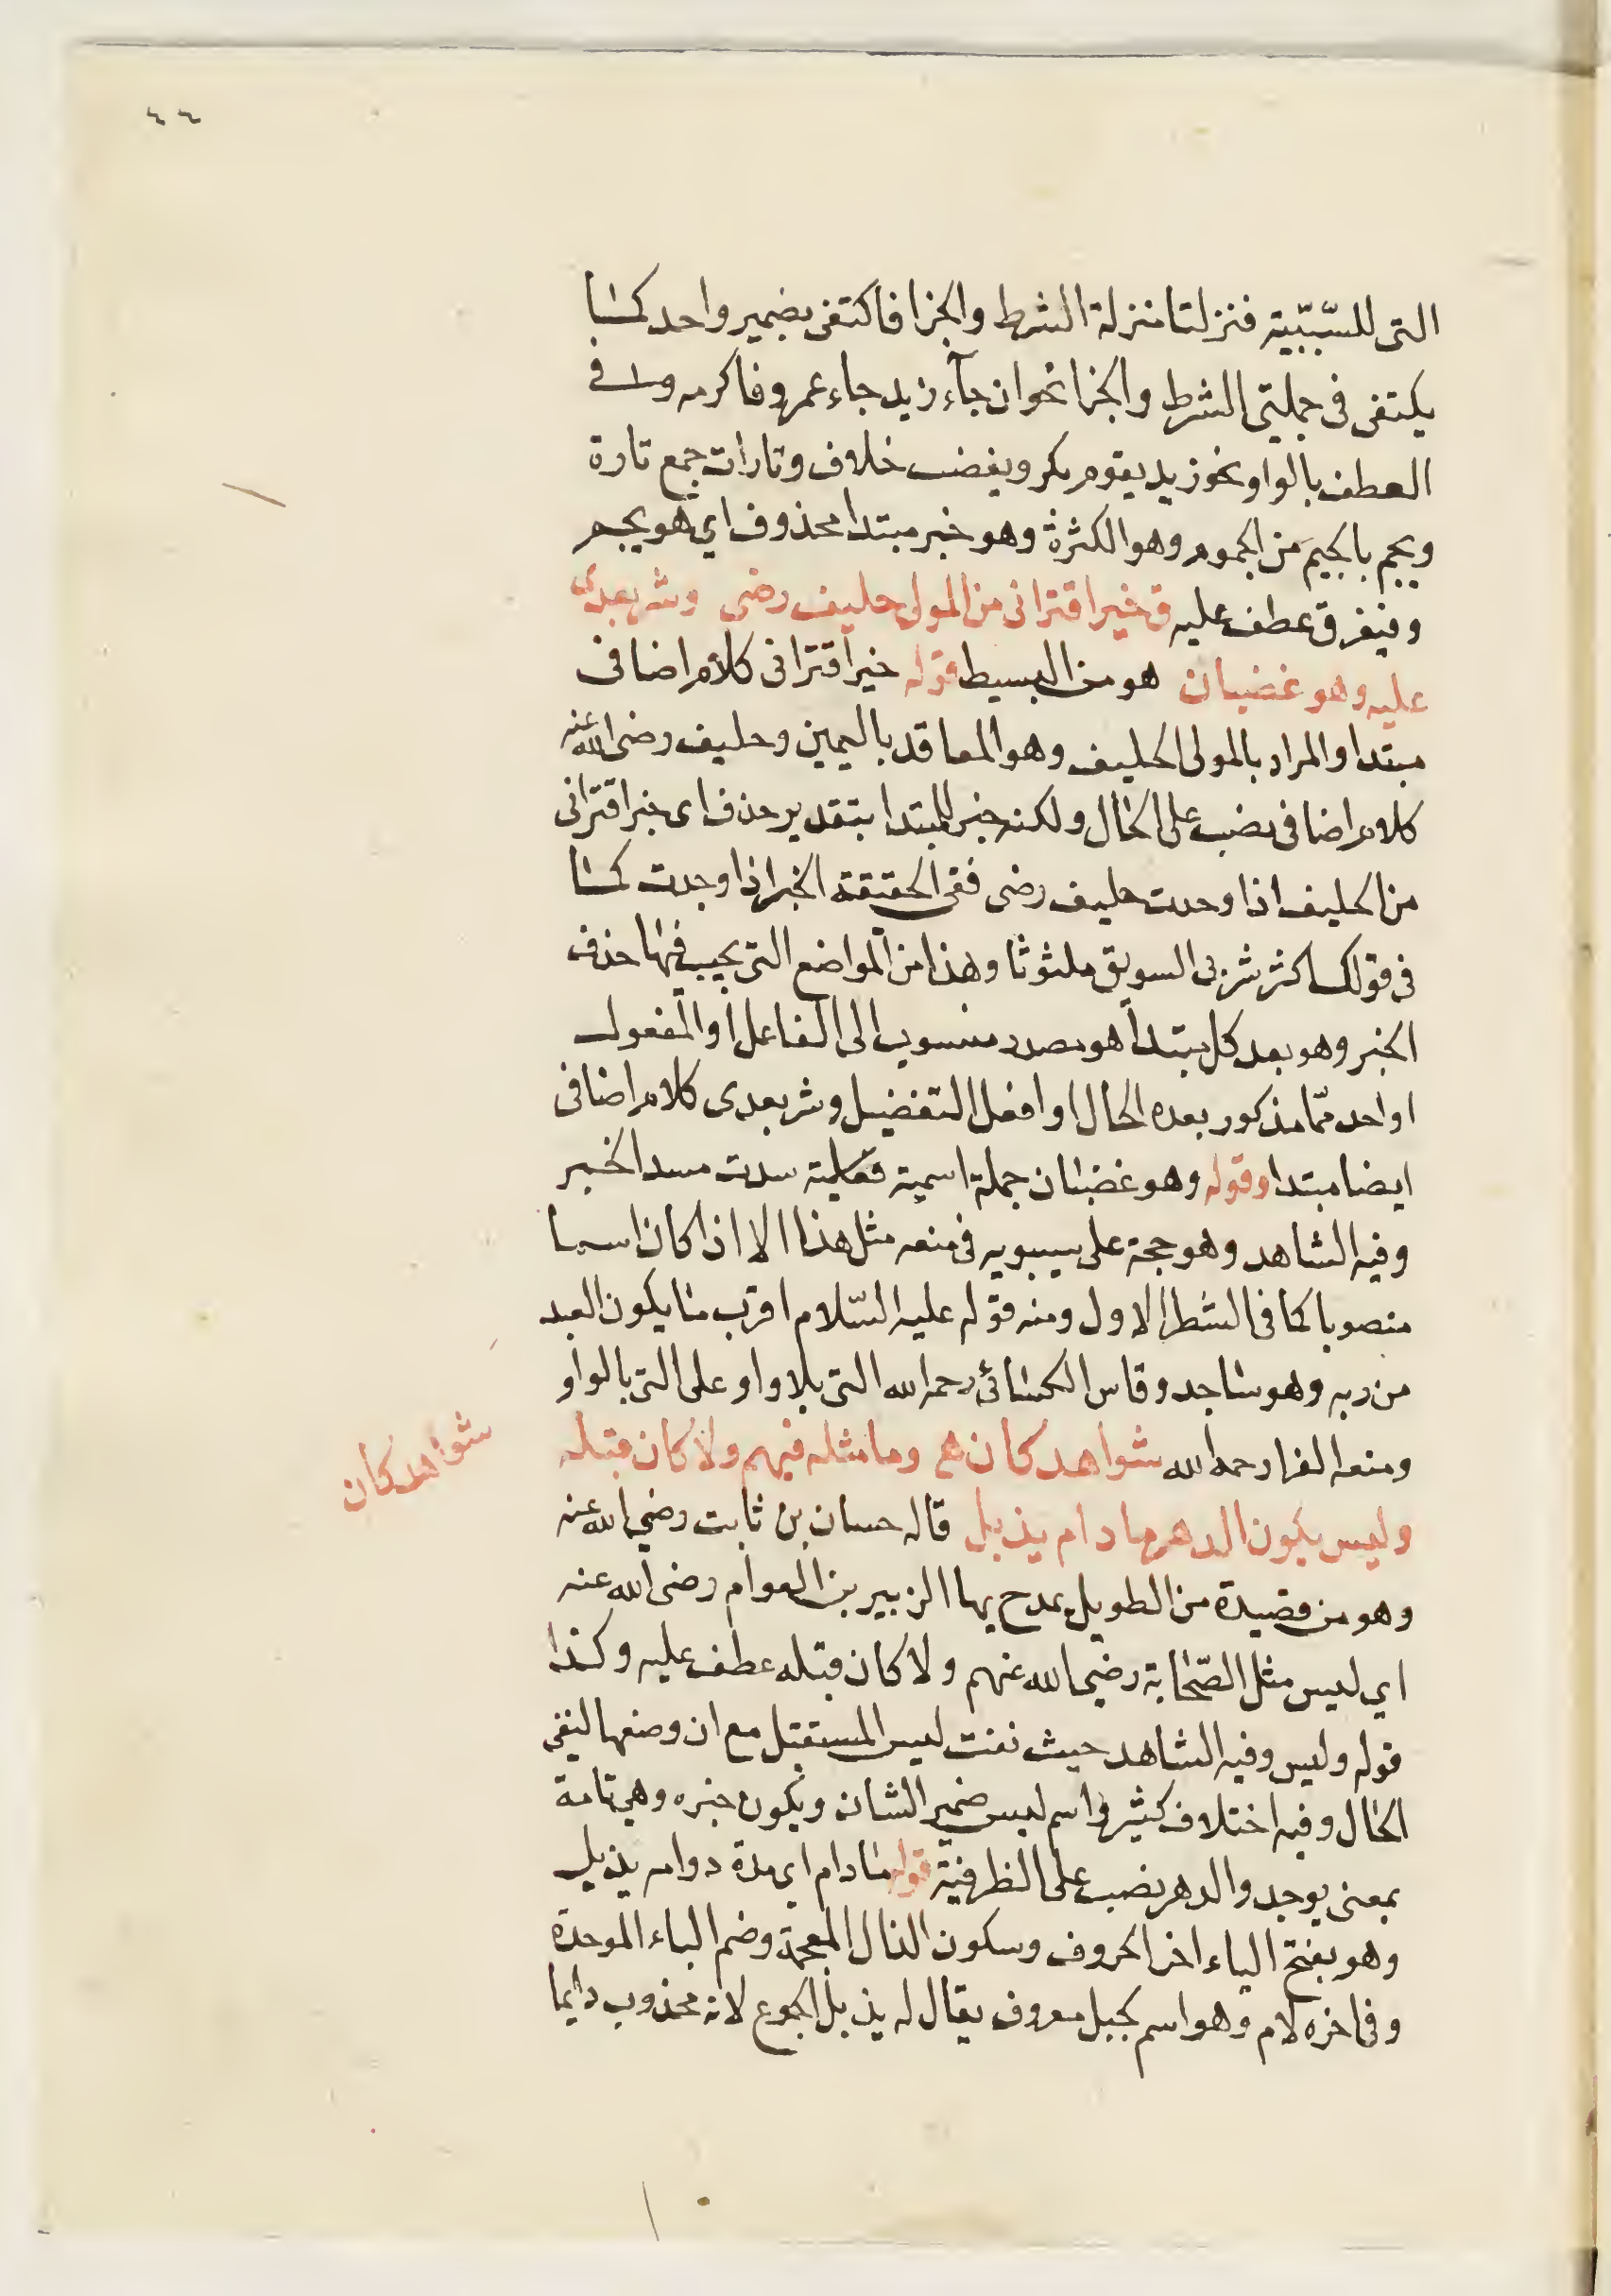 ٤٤
التى للسّببّية فنزلتا منزلة الشرط والجزا فاكتفى بضمير واحد كما
يكتفى فى جملتى الشرط والجزا نحو ان جآء زيد جاء عمرو فاكرمه وفى
العطف بالواو نحو زيد يقوم بكر ويغضب خلاف وتارات جمع تارة
ويجم بالجيم من الجموم وهو الكثرة وهو خبر مبتدا محذوف اي هو يجم
وفيغرق عطف عليه ق خير اقترانى من المولى حليف رضى وشر بعدى
عليه وهو غضبان هو من البسيط قوله خير اقترانى كلام اضافى
مبتدا والمراد بالمولى الحليف وهو المعاقد باليمين وحليف رضى الله عنه
كلام اضافى نصب على الحال ولكنه خبر للمبتدا بتقدير حذف اى خير اقترانى
من الحليف اذا وجدت حليف رضى ففى الحقيقة الخبر اذا وجدت كما
فى قولك اكثر شربى السويق ملتوثا وهذا من المواضع التى يجب فيها حذف
الخبر وهو بعد كل مبتدأ هو مصدر منسوب الى الفاعل او المفعول
او احدهما مذكور بعده الحال او افعل التفضيل وشر بعدى كلام اضافى
ايضا مبتدا وقوله وهو غضبان جملة اسمية سدت مسد الخبر
وفيه الشاهد وهو حجة على سيبويه فى منعه مثل هذا الا اذا كان اسما
منصوبا كما فى الشطر الاول ومنه قوله عليه السّلام اقرب ما يكون العبد
من ربه وهو ساجد وقاس الكسائى رحمه الله التى بلا واو على التى بالواو
ومنعه الفرا رحمه الله شواهد كان وما مثله فيهم ولا كان قبله
وليس يكون الدهر ما دام يذبل قاله حسان بن ثابت رضي الله عنه
وهو من قصيدة من الطويل يمدح بها الزبير بن العوام رضى الله عنه
اي ليس مثل الصّحابة رضي الله عنهم ولا كان قبله عطف عليه وكذا
قوله وليس وفيه الشاهد حيث نفت ليس المستقبل مع ان وضعها لنفى
الحال وفيه اختلاف كثير واسم ليس ضمير الشان ويكون خبره وهى تامة
بمعنى يوجد والدهر نصب على الظرفية قوله ما دام اى مدة دوامه يذبل
وهو بفتح الياء اخر الحروف وسكون الذال المعجمة وضم الباء الموحدة
وفى اخره لام وهو اسم لجبل معروف يقال له يذبل الجوع لانه مجذوب دايما
شواهد كان